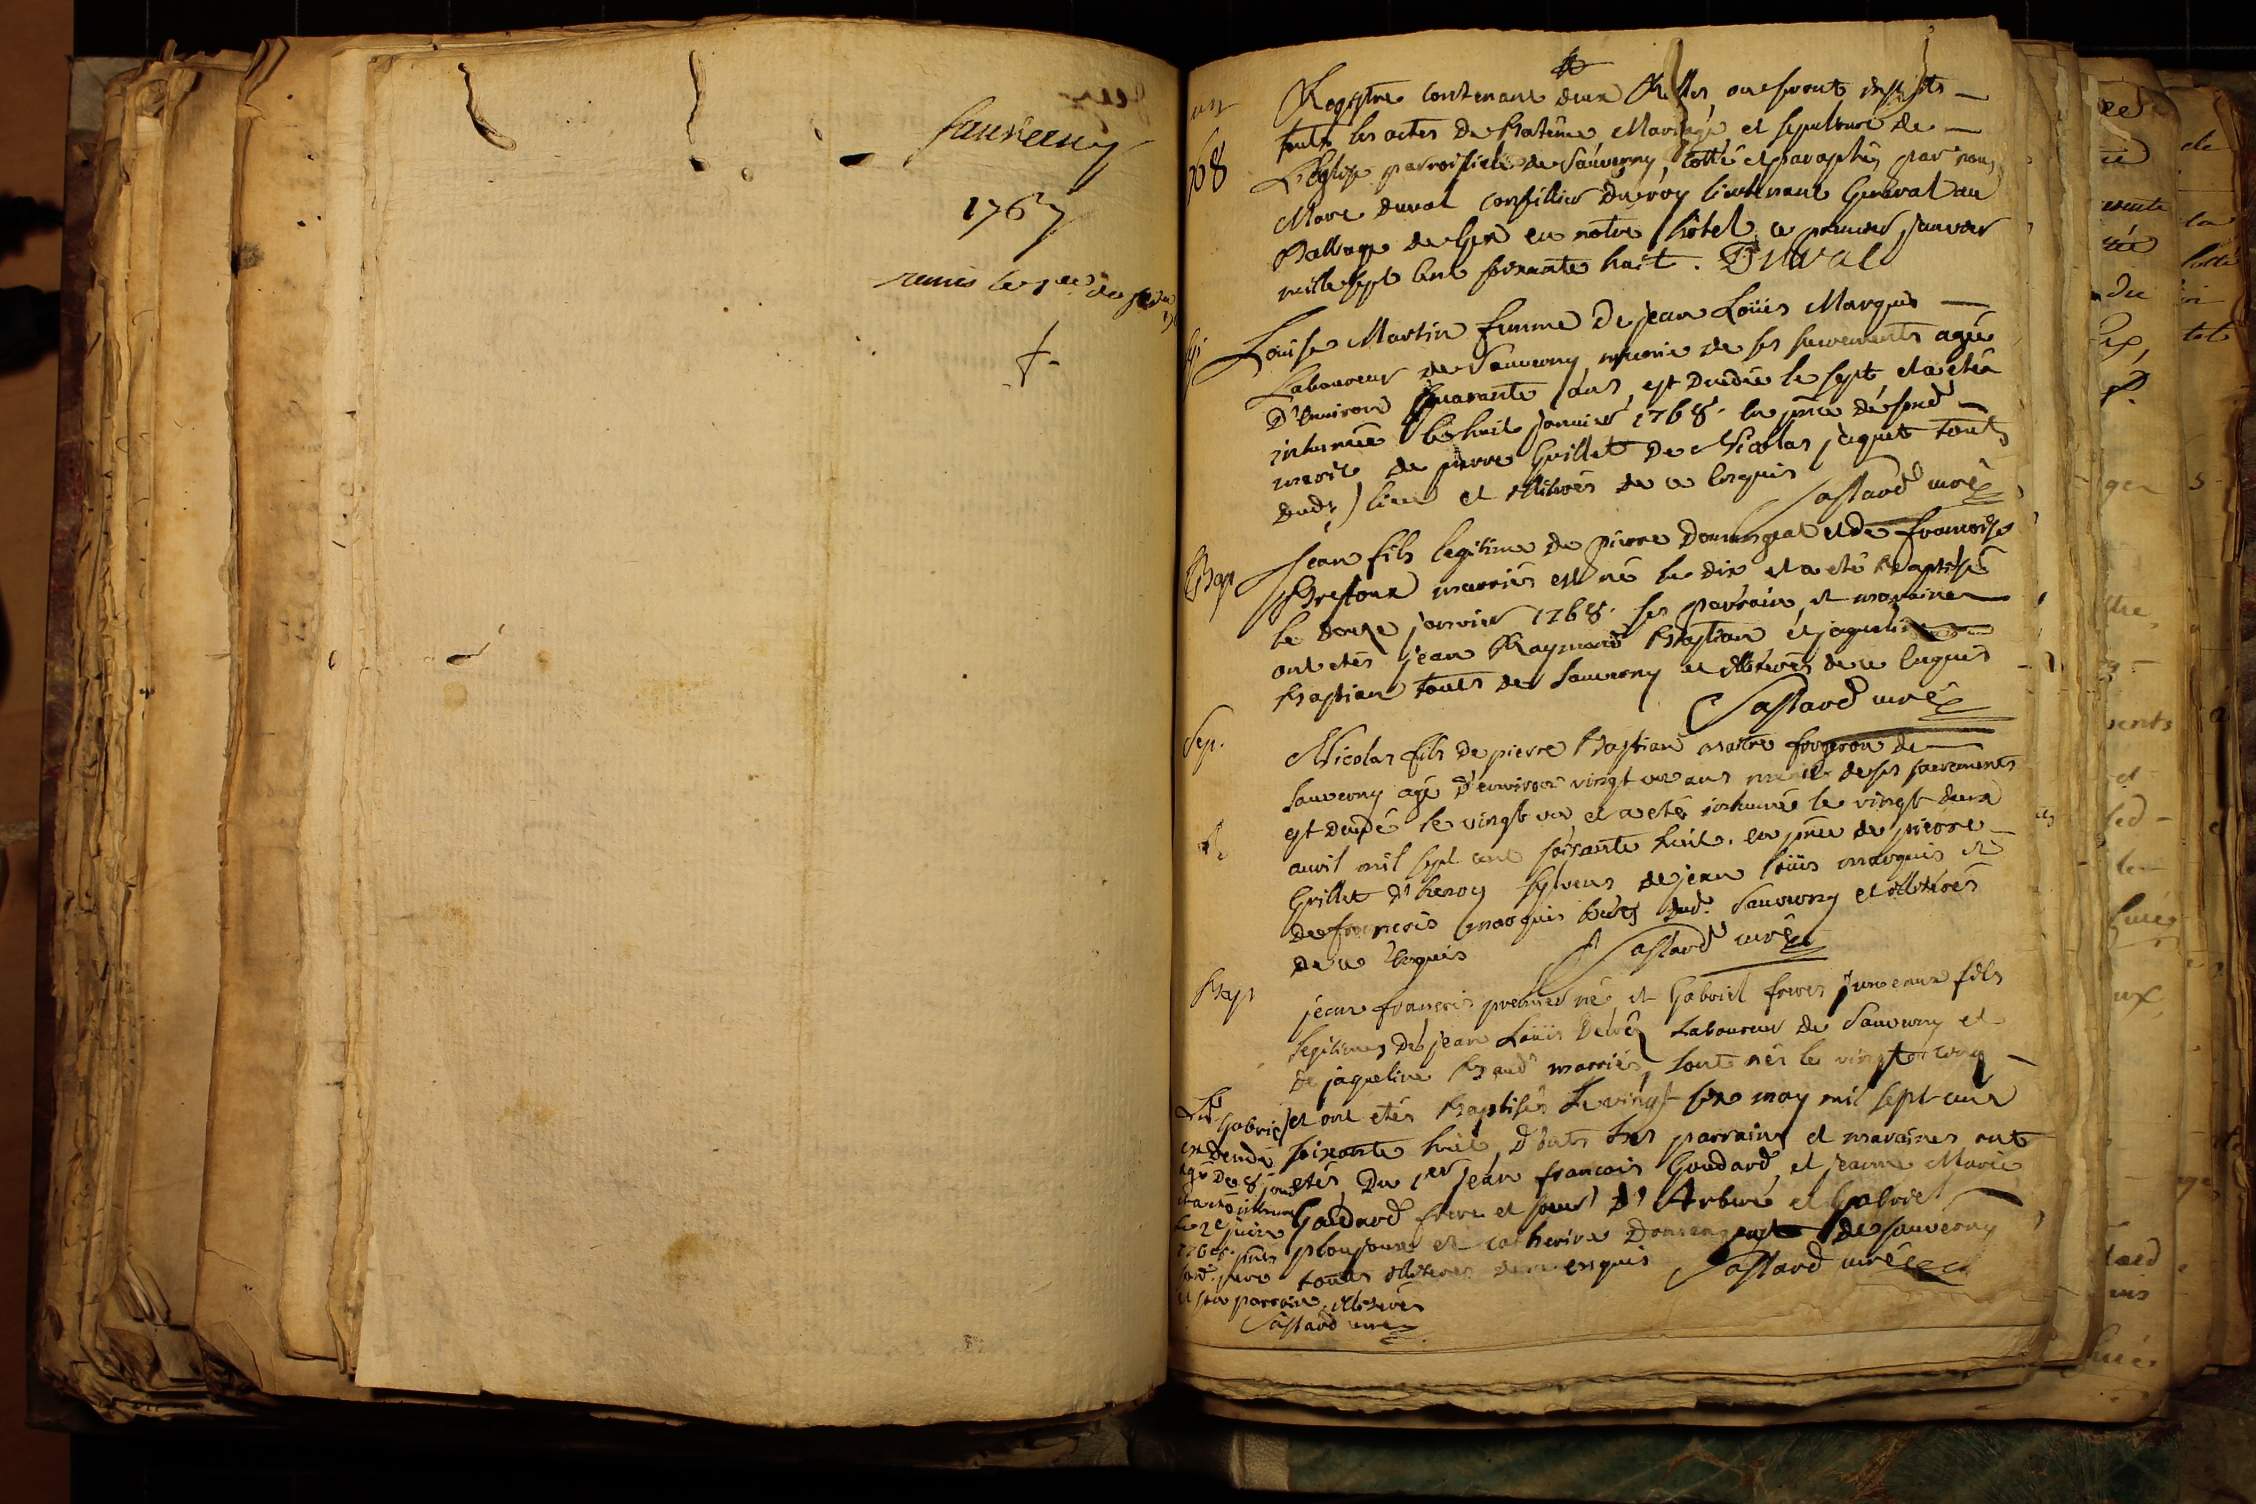 Sauverny
1767
remis le 1er de
f.
Registre contenant deux feuilles, ou seront inscripts
touts les actes de Batême, Mariage et sepulture de
L'Eglise parroissiale de Sauverny, cotté et paraphés par nous
Marc duval conseillier du roy lieutenant General au
Balliage de Gex en notre hôtel ce premier janvier
mille sept cent soixante huit. Duval
68
Louise Martin femme de jean Loüis Marquis
Laboureur de Sauverny, munie de ses sacrements agée
D'environ quarante ans, est decedée le sept, et a etée
inhumée le huit janvier 1768. en pnce de sond
marit de pierre Grillet De Nicolas jaquet touts
dud. lieu et illitérés de ce enquis Castard curé
Bap
jean fils legitime de pierre Domengeat et de francoise
Brestoux marriés est né le dix et a eté Baptisé
le douze janvier 1768. ses parrain, et maraine
ont etés jean Raymond Bastian et jaqueline
Bastian touts de Sauverny et illiterés de ce enquis
Castard curé
Sep.
Nicolas fils de pierre Bastian maitre forgeron de
Sauverny agé d'environ vingt un ans munit de ses sacrements
est decedé le vingt un et a eté inhumé le vingt deux
avril mil sept cent soixante huit. en pnce de pierre
Grillet de jean loüis marquis et
de francois marquis touts dud. Sauverny et illiterés
de ce enquis Castard curé
Bap
jean francois premier né et Gabriel freres jumeaux fils
legitimes de jean Loüis Laboureur de Sauverny et
de jaqueline marriés, sont nés le vingt cinq
et ont etés Baptisés le vingt six may mil sept cent
soixante huit, dont les parrains et maraines ont
etés Du 1er jean francois Goudard et jeanne Marie
Goudard frere et soeur d'Arbere et Gabriel
ploujoux et catherine Domengeat de Sauverny
touts illiterés de ce enquis Castard curé
Led Gabriel
est decedé
agé de 8 jours
et a eté inhumé
le 2e juin
1768. pnts
sond. pere
et son parrain illiterés
Castard curé